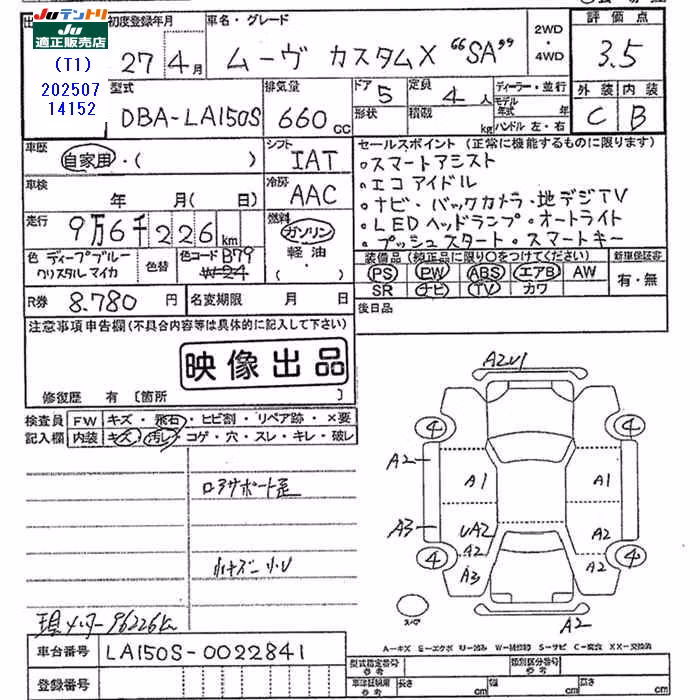 JU テントリ
JU 適正販売店
(T1)
202507
14152
初度登録年月
27年4月
車名・グレード
ムーヴ カスタムX “SA”
2WD・4WD
評価点
3.5
型式
DBA-LA150S
排気量
660cc
ドア 5
形状
定員 4人
積載 kg
ディーラー・並行
モデル年式 年
ハンドル 左・右
外装 内装
C B
車歴
自家用・( )
シフト
IAT
冷房
AAC
セールスポイント (正常に機能するものに限ります)
・スマートアシスト
・エコアイドル
・ナビ・バックカメラ・地デジTV
・LEDヘッドランプ・オートライト
・プッシュスタート・スマートキー
車検
年 月( 日)
走行
9万6千226km
燃料
ガソリン
軽油
色 ディープブルークリスタルマイカ
色替
色コード B79
W-24
装備品 (純正品に限り○をつけてください)
PS PW ABS エアB AW
SR ナビ TV カワ
新車保証書
有・無
R券
8.780円
名変期限 月 日
後日品
注意事項申告欄(不具合内容等は具体的に記入して下さい)
映像出品
修復歴 有 [箇所 ]
検査員記入欄
FW キズ・飛石・ヒビ割・リペア跡・×要
内装 キズ・汚レ・コゲ・穴・スレ・キレ・破レ
ロアサポート歪
現メーター96226km
A2U1
4 4
A2 A1 A1
A3 UA2 A2
A2 A3 A2
4 4
スペア
A2
A-キズ E-エクボ U-凹み W-補修跡 S-サビ C-腐食 XX-交換済
車台番号
LA150S-0022841
登録番号
型式指定番号 参考
類別区分番号 参考
車体証明用 参考
長さ cm
幅 cm
高さ cm